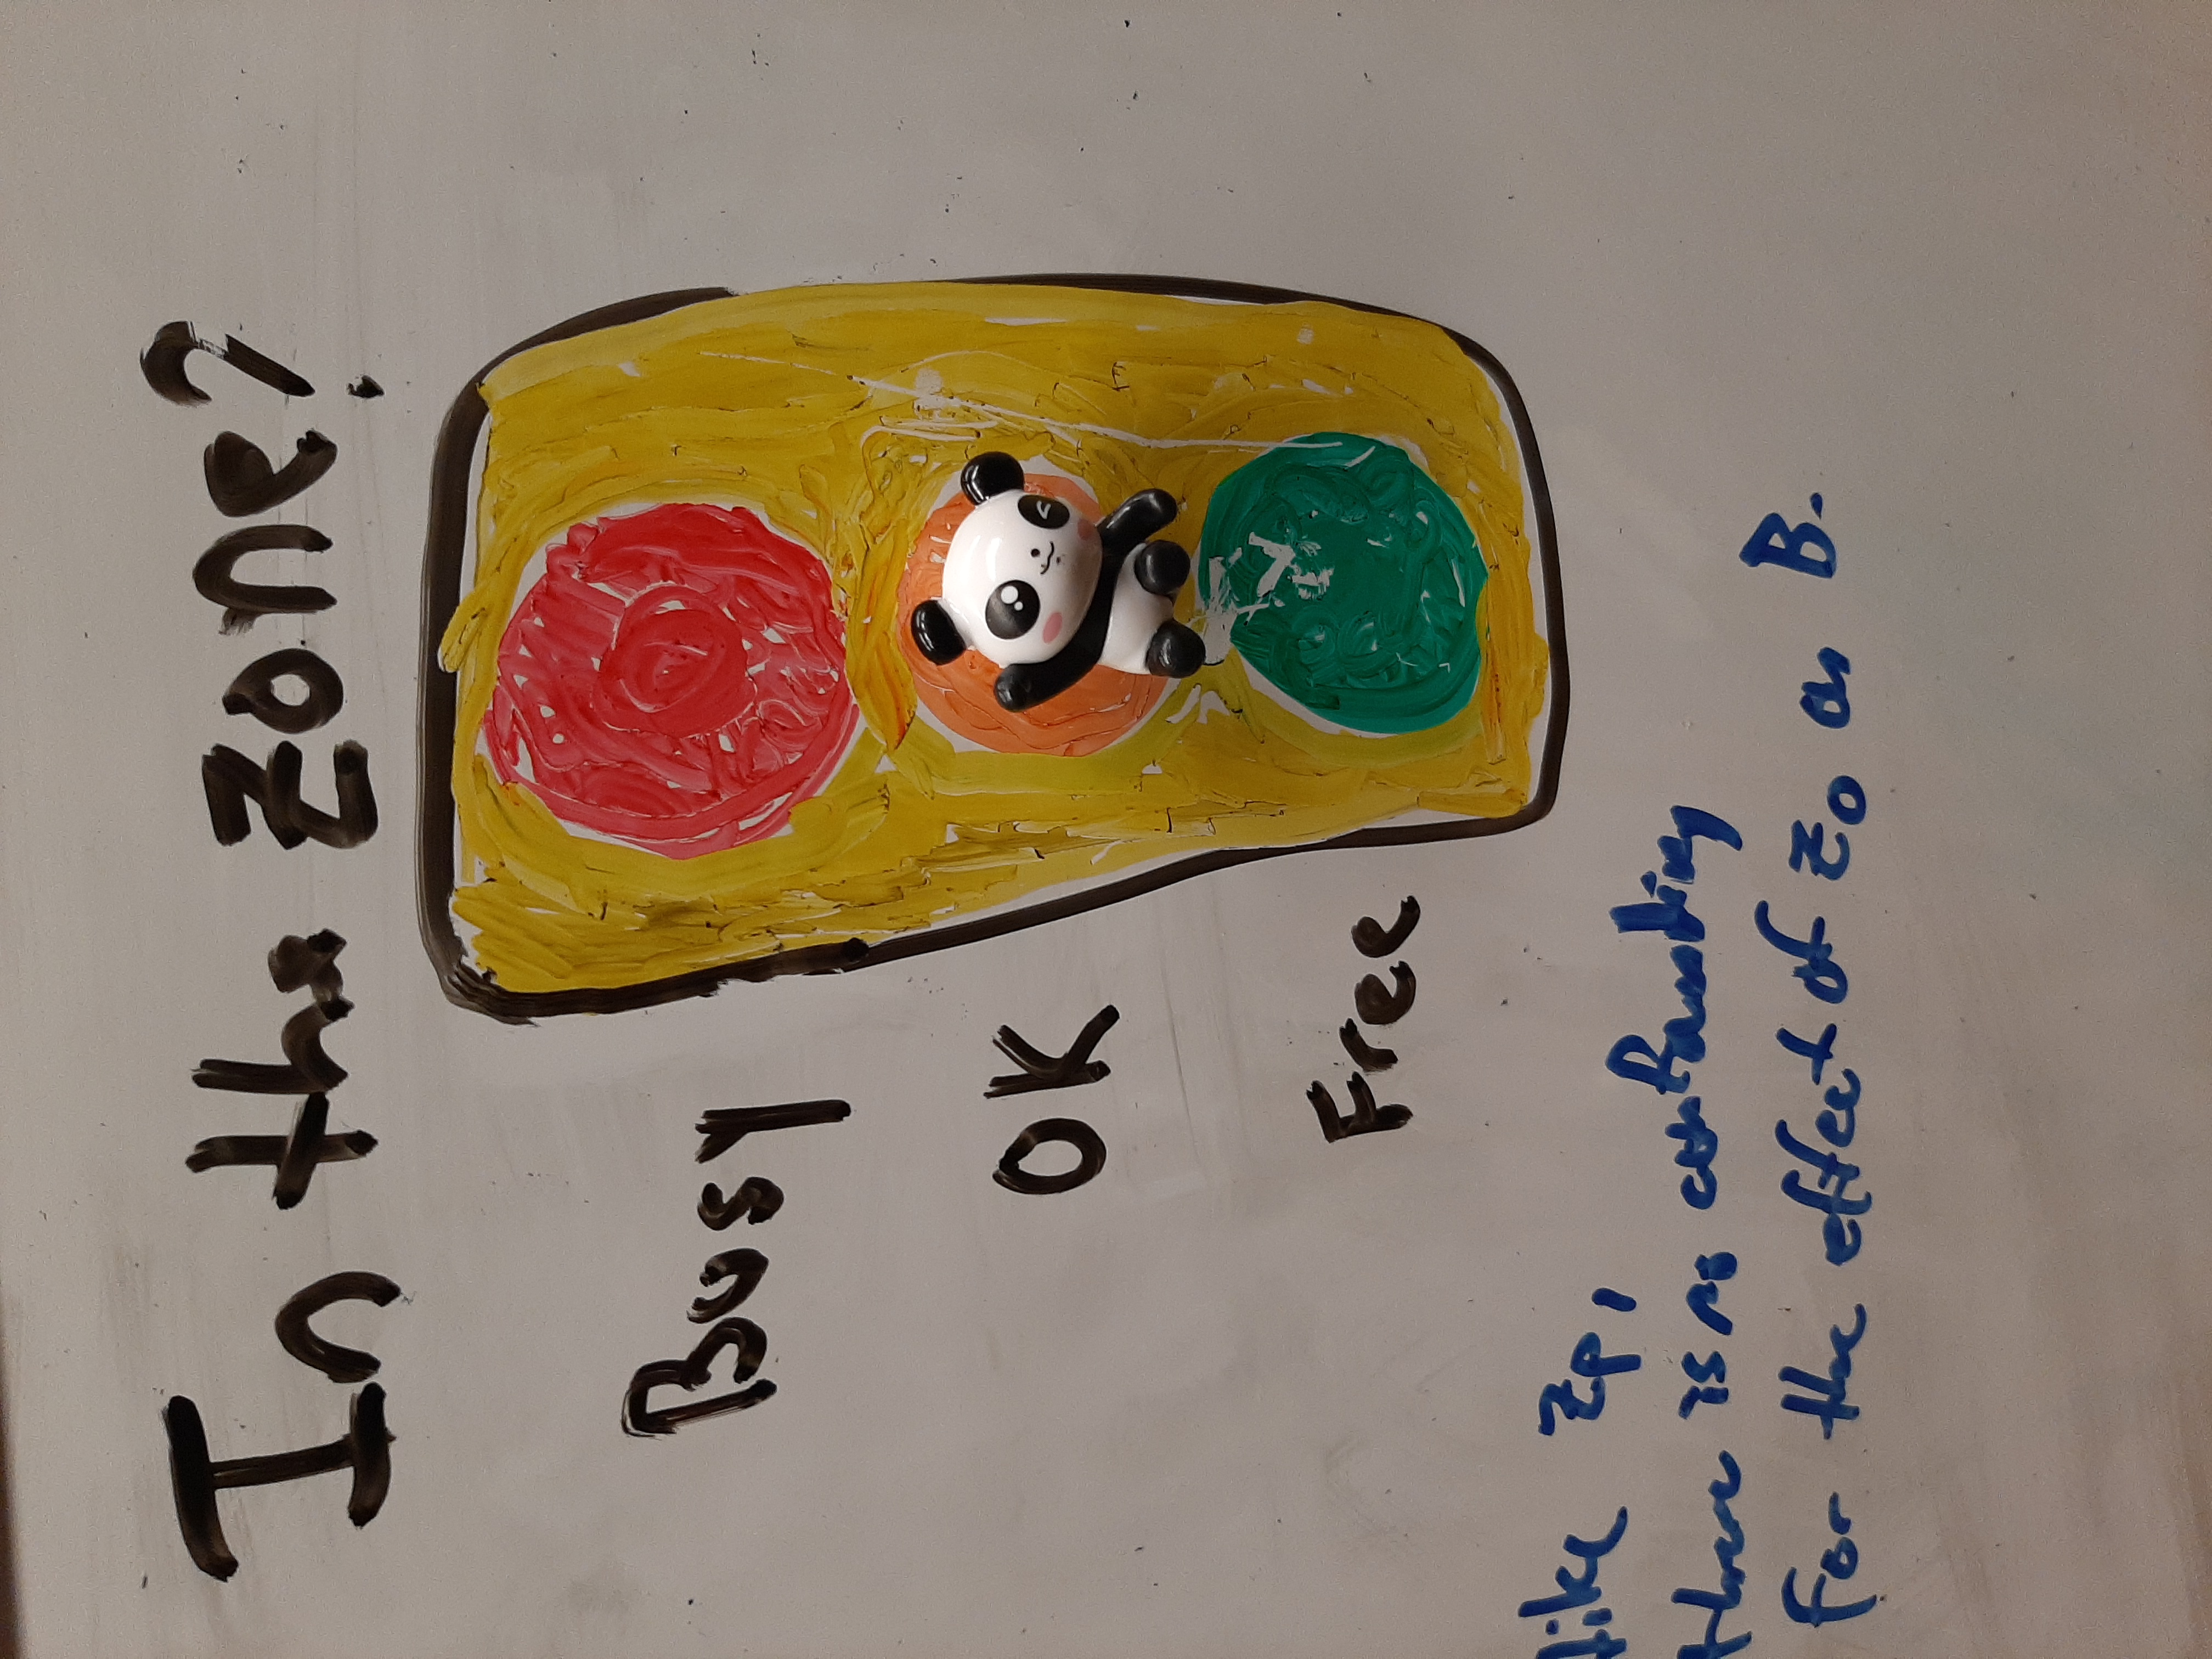 In the zone?
Busy
OK
Free
like Zp,
there is no confounding
For the effect of Zo on B.